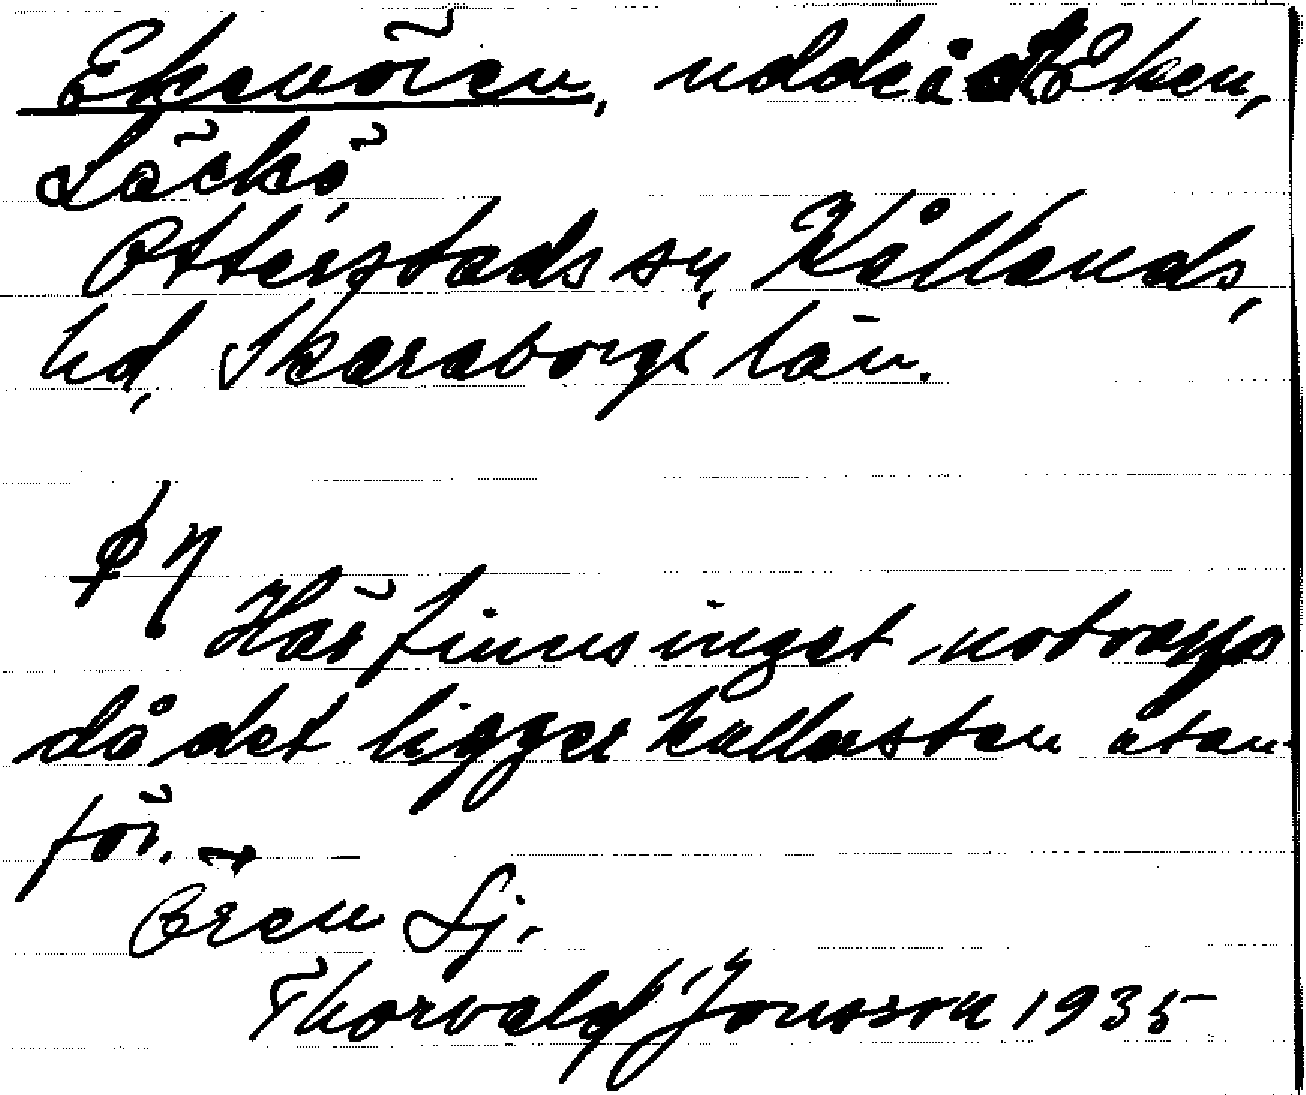 Eksnören, udde å Eken,
Läckö,
Otterstads sn, Kållands,
hd, Skaraborgs län.
Här finns inget notvarp
då det ligger kullersten utan-
för.
Ören Sj.
Thorvald Jonsson 1935